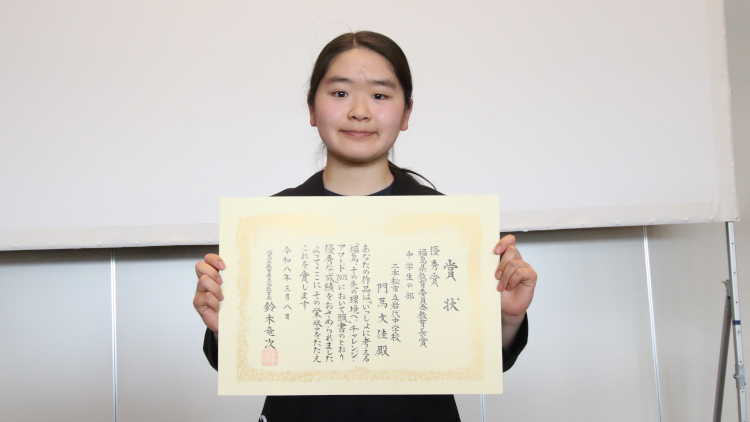 賞状
優秀賞
福島県教育委員会教育長賞
中学生の部
二本松市立岩代中学校
門馬文佳殿
あなたの作品は、いっしょに考える
「福島、その先の環境へ。」チャレンジ・
アワード2025において頭書のとおり
優秀な成績をおさめられました
よってここにその栄誉をたたえ
これを賞します
令和八年三月八日
福島県教育委員会教育長 鈴木竜次